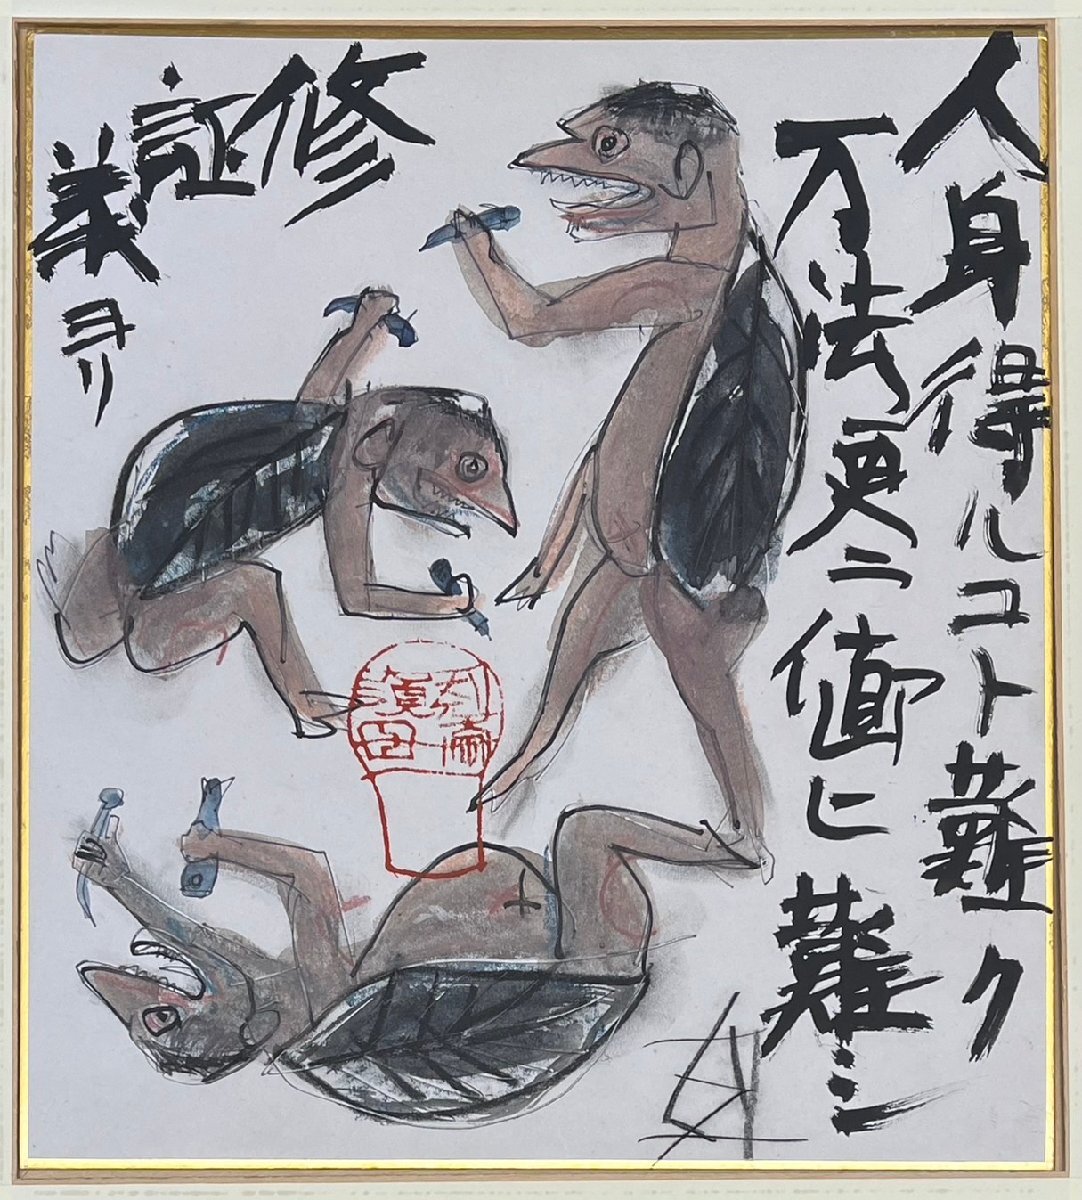 人身得ルコト難ク
万法更ニ値ヒ難シ
修証義ヨリ